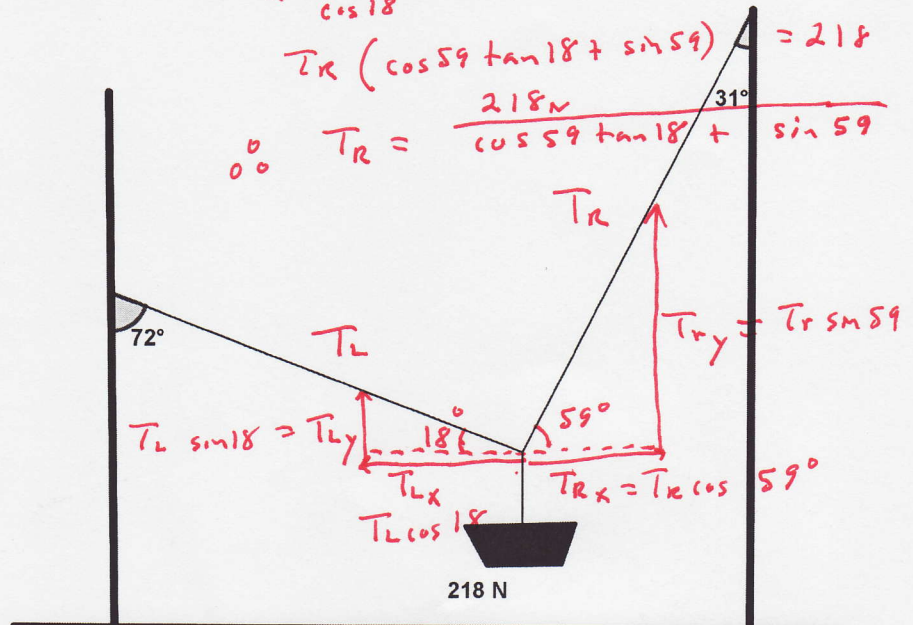 cos 18
TR (cos 59 tan 18 + sin 59) = 218
31°
218 N
∴ TR = cos 59 tan 18 + sin 59
TR
72°
TL
Try = Tr sin 59
TL sin 18 = TLy
18°
59°
TLx
TRx = TR cos 59°
TL cos 18
218 N